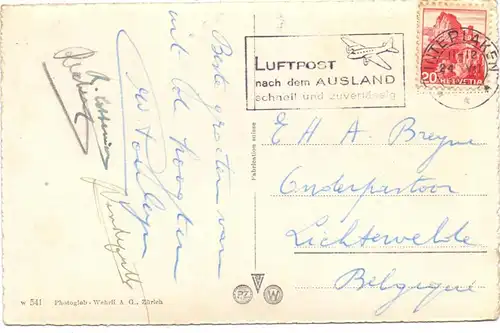 Beste groeten van
uit de hoogten
LUFTPOST
nach dem AUSLAND
schnell und zuverlässig
INTERLAKEN
20
HELVETIA
EH A Breyne
Onderpastoor
Lichtervelde
Belgique
Fabrication suisse
PZ
W
w 541 Photoglob-Wehrli A. G., Zürich